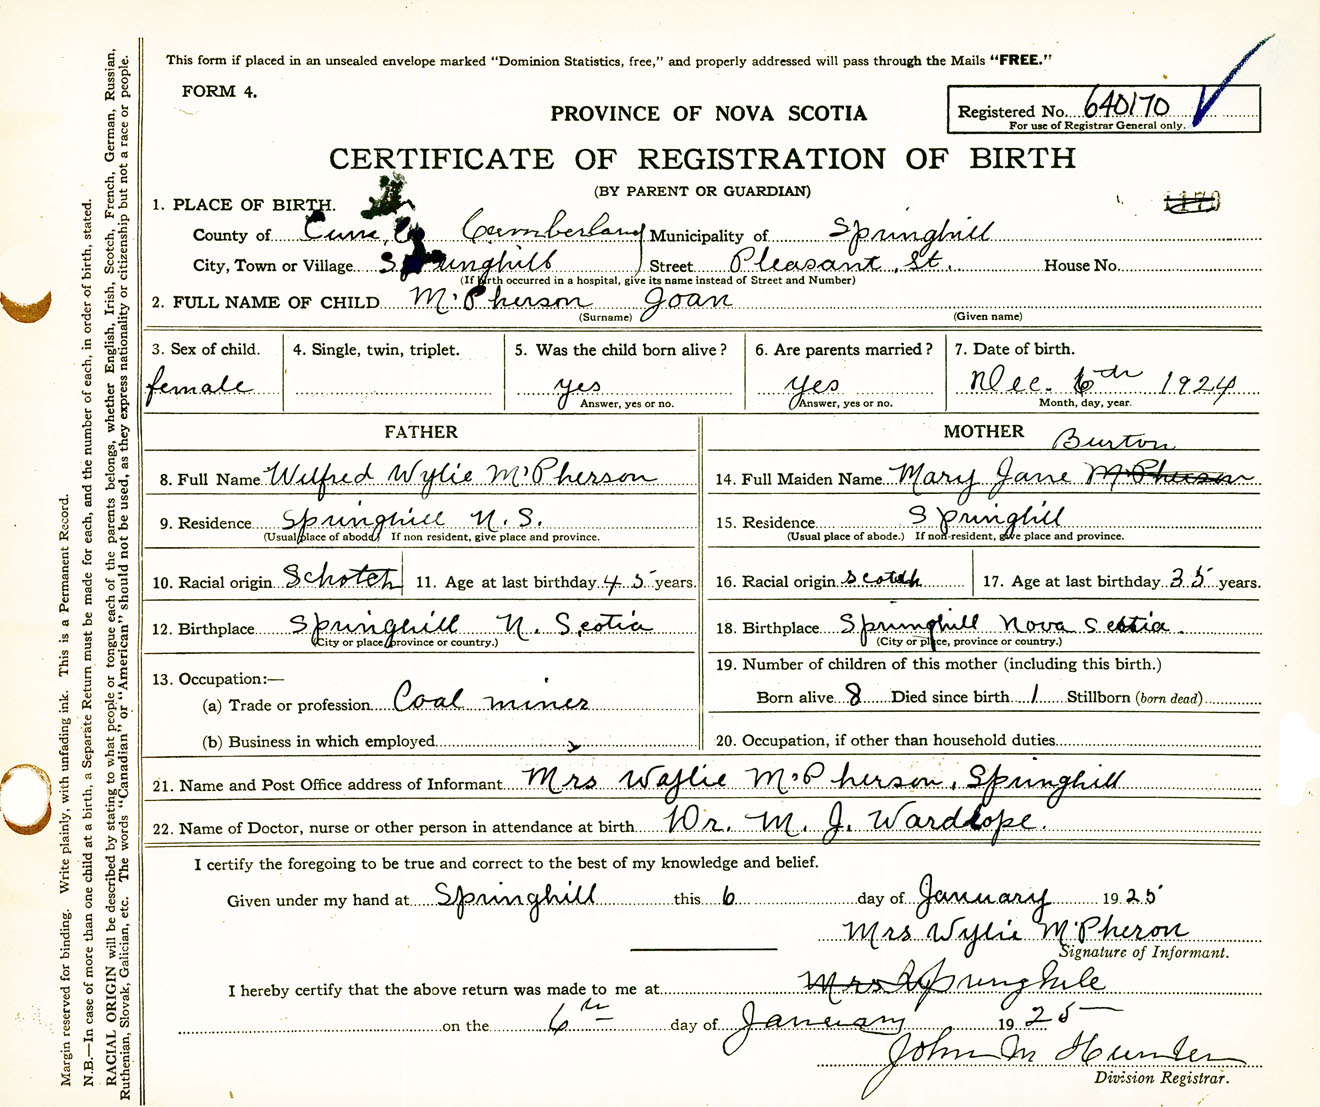 This form if placed in an unsealed envelope marked "Dominion Statistics, free," and properly addressed will pass through the Mails "FREE."
FORM 4.
PROVINCE OF NOVA SCOTIA
Registered No. 640170
For use of Registrar General only.
CERTIFICATE OF REGISTRATION OF BIRTH
(BY PARENT OR GUARDIAN)
1. PLACE OF BIRTH.
County of Cumberland Municipality of Springhill
City, Town or Village Springhill Street Pleasant St. House No.
(If birth occurred in a hospital, give its name instead of Street and Number)
2. FULL NAME OF CHILD McPherson Joan
(Surname) (Given name)
3. Sex of child. 4. Single, twin, triplet. 5. Was the child born alive? 6. Are parents married? 7. Date of birth.
female yes yes Dec. 6th 1924
Answer, yes or no. Answer, yes or no. Month, day, year.
FATHER MOTHER Burton
8. Full Name Wilfred Wylie McPherson 14. Full Maiden Name Mary Jane McPherson
9. Residence Springhill N.S. 15. Residence Springhill
(Usual place of abode) If non resident, give place and province. (Usual place of abode.) If non-resident, give place and province.
10. Racial origin Schotch 11. Age at last birthday 45 years. 16. Racial origin scotch 17. Age at last birthday 35 years.
12. Birthplace Springhill N. Scotia 18. Birthplace Springhill Nova Scotia.
(City or place, province or country.) (City or place, province or country.)
19. Number of children of this mother (including this birth.)
13. Occupation:—
(a) Trade or profession Coal miner Born alive 8 Died since birth 1 Stillborn (born dead)
(b) Business in which employed 20. Occupation, if other than household duties
21. Name and Post Office address of Informant Mrs Waylie McPherson, Springhill
22. Name of Doctor, nurse or other person in attendance at birth Dr. M. J. Wardrope.
I certify the foregoing to be true and correct to the best of my knowledge and belief.
Given under my hand at Springhill this 6 day of January 1925
Mrs Wylie McPheron
Signature of Informant.
I hereby certify that the above return was made to me at Mrs Springhill
on the 6th day of January 1925
John M Hunter
Division Registrar.
Margin reserved for binding. Write plainly, with unfading ink. This is a Permanent Record.
N.B.—In case of more than one child at a birth, a Separate Return must be made for each, and the number of each, in order of birth, stated.
RACIAL ORIGIN will be described by stating to what people or tongue each of the parents belongs, whether English, Irish, Scotch, French, German, Russian,
Ruthenian, Slovak, Galician, etc. The words "Canadian" or "American" should not be used, as they express nationality or citizenship but not a race or people.